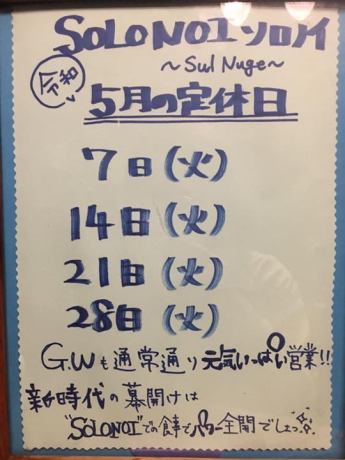 SOLONOI ソロノイ
～Sul Nuge～
令和
5月の定休日
7日(火)
14日(火)
21日(火)
28日(火)
G.Wも通常通り元気いっぱい営業!!
新時代の幕開けは
"SOLONOI"での食事でパワー全開でしょっ